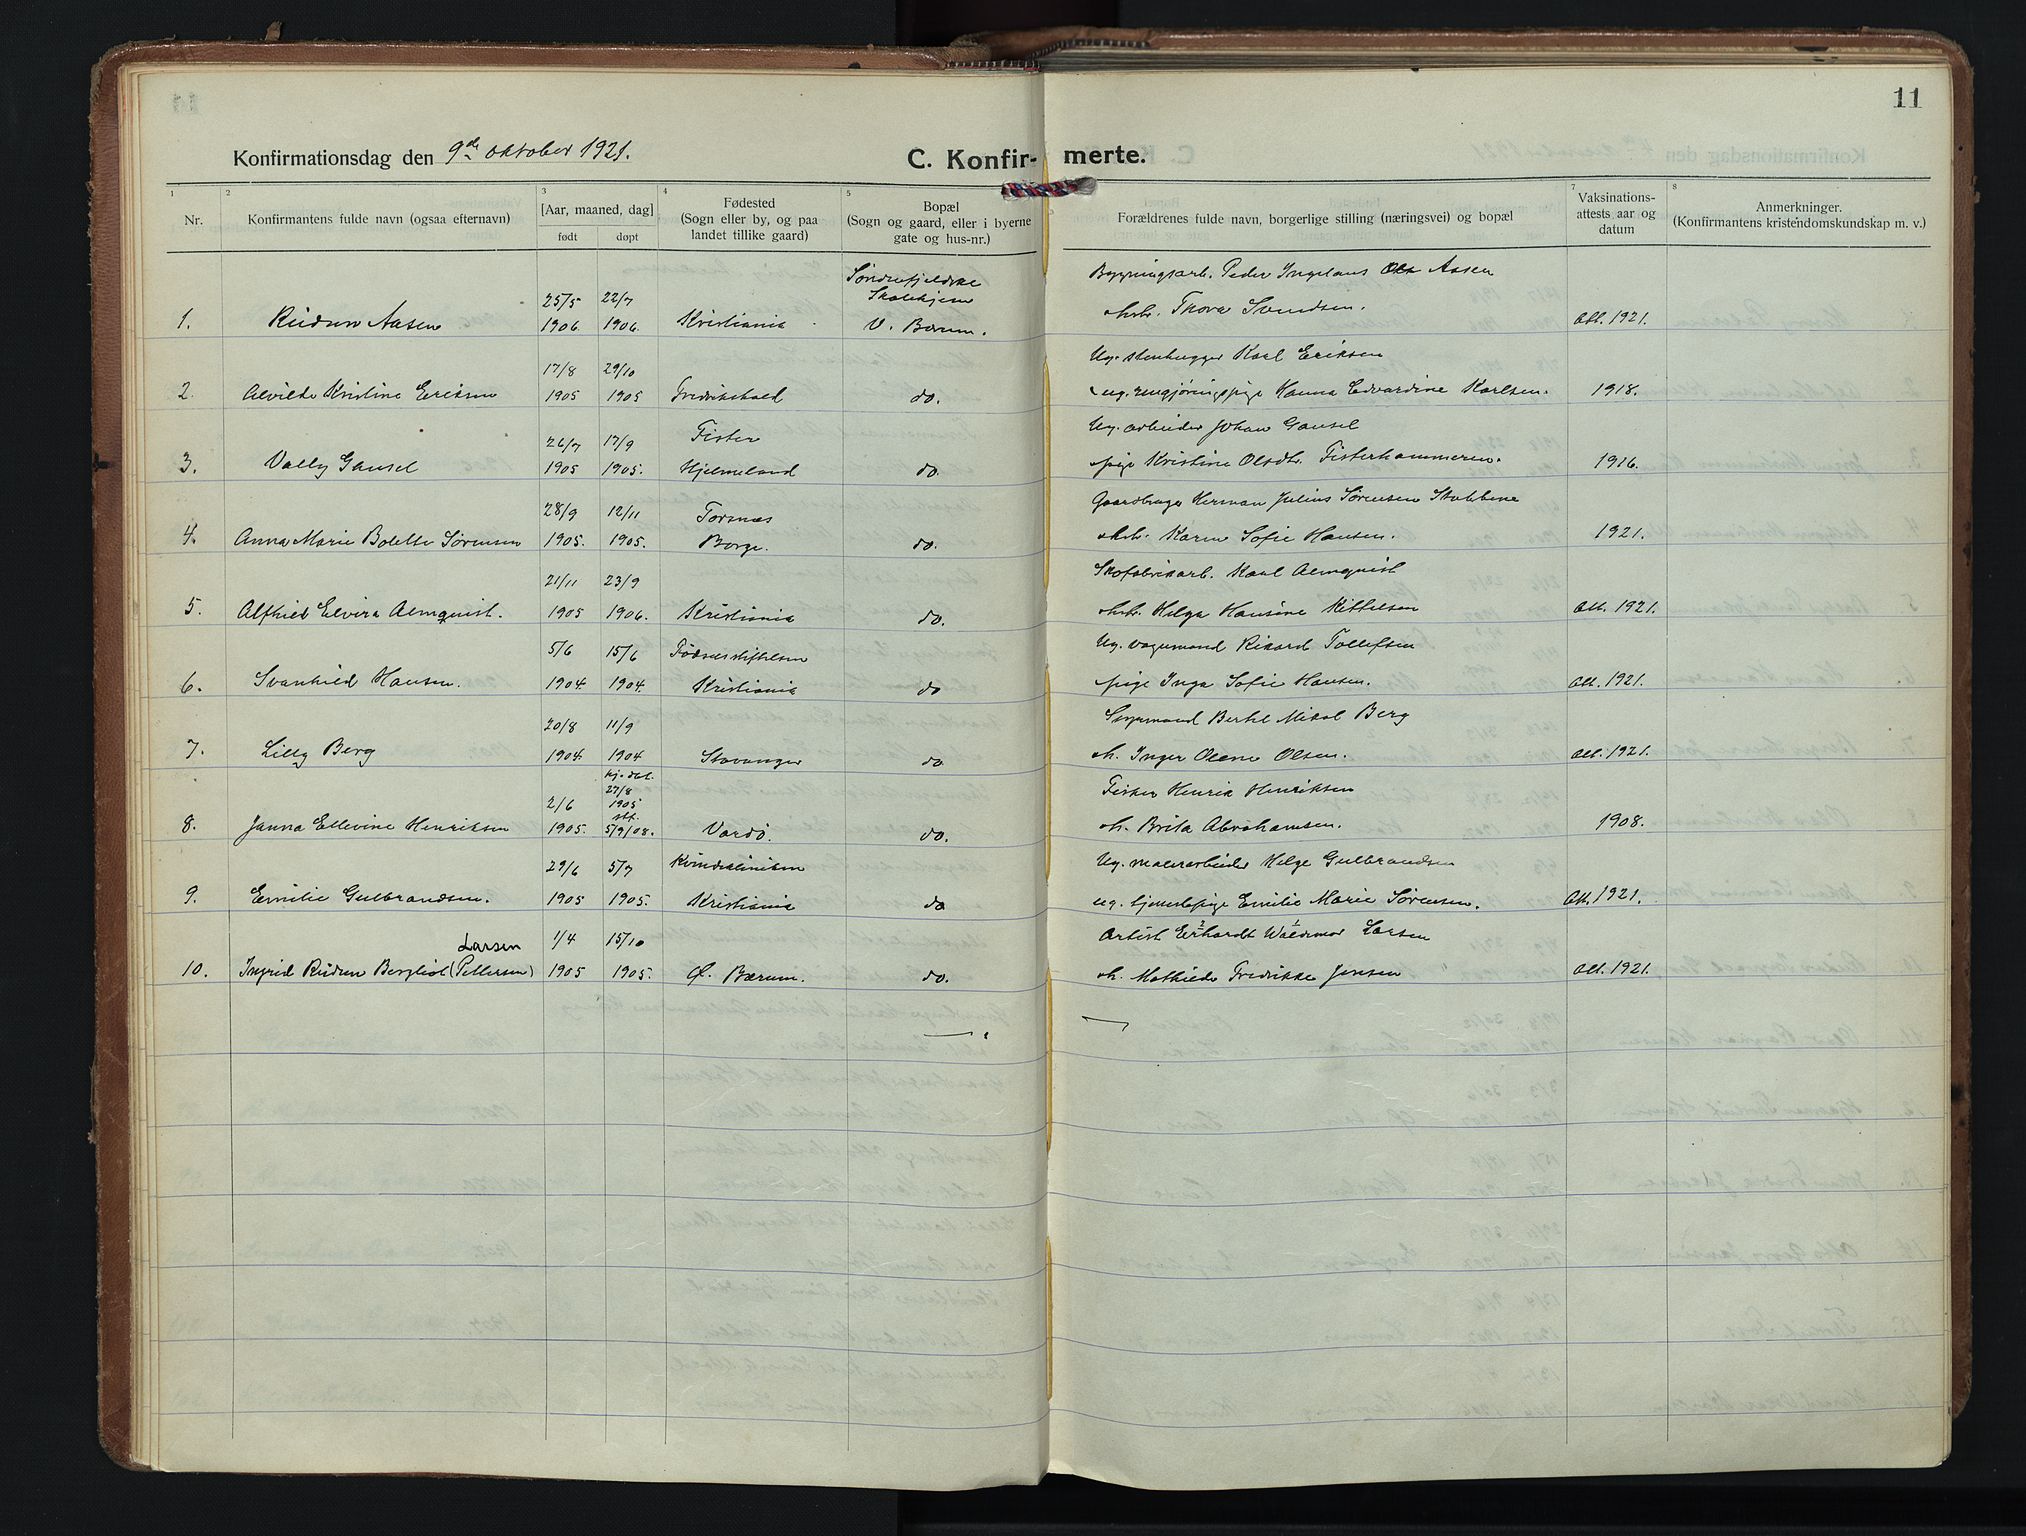 11
Konfirmationsdag den 9de oktober 1921.
C. Konfirmerte.
1 2 3 4 5 7 8
Nr.
Konfirmantens fulde navn (ogsaa efternavn)
[Aar, maaned, dag]
født døpt
Fødested
(Sogn eller by, og paa
landet tillike gaard)
Bopæl
(Sogn og gaard, eller i byerne
gate og hus-nr.)
Forældrenes fulde navn, borgerlige stilling (næringsvei) og bopæl
Vaksinations-
attests aar og
datum
Anmerkninger.
(Konfirmantens kristendomskundskap m. v.)
Søndenfjeldske Bygningsarb. Peder Ingelaus Aasen
25/5 22/7 Skolehjem
1. Reidun Aasen 1906. 1906. Kristiania V. Bærum. Thora Svendsen. att. 1921.
17/8 29/10 Ug. stenhugger Karl Eriksen
2. Alvilde Kristine Eriksen 1905 1905 Fredrikshald do. ug. rengjøringspige Hanna Edvardine Karlsen. 1918.
26/7 17/9 Fister Ug. arbeider Johan Gausel
3. Vally Gausel 1905 1905. Hjelmeland do. pige Kristine Olsdtr. Fisterhammeren. 1916.
28/9 12/11 Torsnæs Gaardbruger Herman Julius Sørensen Stubbene
4. Anna Marie Bolette Sørensen 1905. 1905. Borge. do. Karen Sofie Hansen. 1921.
21/11 23/9 Skofabrikarb. Karl Almquist
5. Alfhild Elvira Almquist. 1905 1906. Kristiania do. Helga Hansine Kittelsen att. 1921.
5/6 15/6 Fødselsstiftelsen Ug. vognmand Rikard Tollefsen
6. Svanhild Hansen. 1904. 1904. Kristiania do pige Inga Sofie Hansen. att. 1921.
20/8 11/9 Berg
7. Lilly Berg 1904. 1904 Stavanger do h. Inger Olene Olsen. att. 1921.
hj. døt. 27/8 Fisker Henrik Henriksen
2/6 1905 stf.
8. Janna Ellevine Henriksen 1905. 5/9/08. Vardø. do. h. Brita Abrahamsen. 1908.
29/6 5/7 Kvindeklinikken Ug. malerarbeider Helge Gulbrandsen
9. Emilie Gulbrandsen. 1905 1905. Kristiania do ug. tjenestepige Emilie Marie Sørensen. att. 1921.
Larsen 1/4 15/10 Artist Waldemar Larsen
10. Ingrid Reidun Bergliot (Pettersen) 1905 1905. Ø. Bærum. do. h. Mathilde Fredrikke Jensen att. 1921.